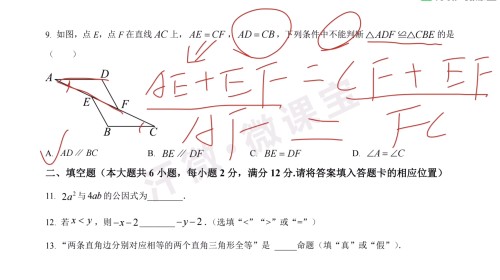 9. 如图，点 E，点 F 在直线 AC 上，AE=CF，AD=CB，下列条件中不能判断△ADF ≌△CBE 的是
（ ）
A
D
E
F
B
C
AE+EF = CF+EF
AF = FC
A. AD∥BC B. BE∥DF C. BE=DF D. ∠A=∠C
二、填空题（本大题共 6 小题，每小题 2 分，满分 12 分.请将答案填入答题卡的相应位置）
11. 2a² 与 4ab 的公因式为______.
12. 若 x < y，则 −x−2______−y−2．（选填“<”“>”或“=”）
13. “两条直角边分别对应相等的两个直角三角形全等”是 _____命题（填“真”或“假”）.